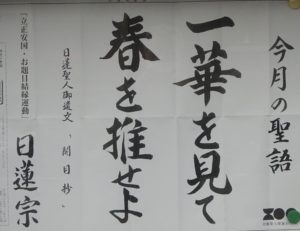 今月の聖語
一華を見て
春を推せよ
日蓮聖人御遺文「開目抄」
「立正安国・お題目結縁運動」
日蓮宗